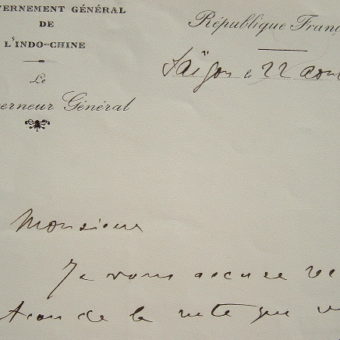 VERNEMENT GÉNÉRAL
DE
L'INDO-CHINE
Le
erneur Général
République Fran
Saïgon le 22 aou
Monsieur
Je vous accuse ré
de la note que v